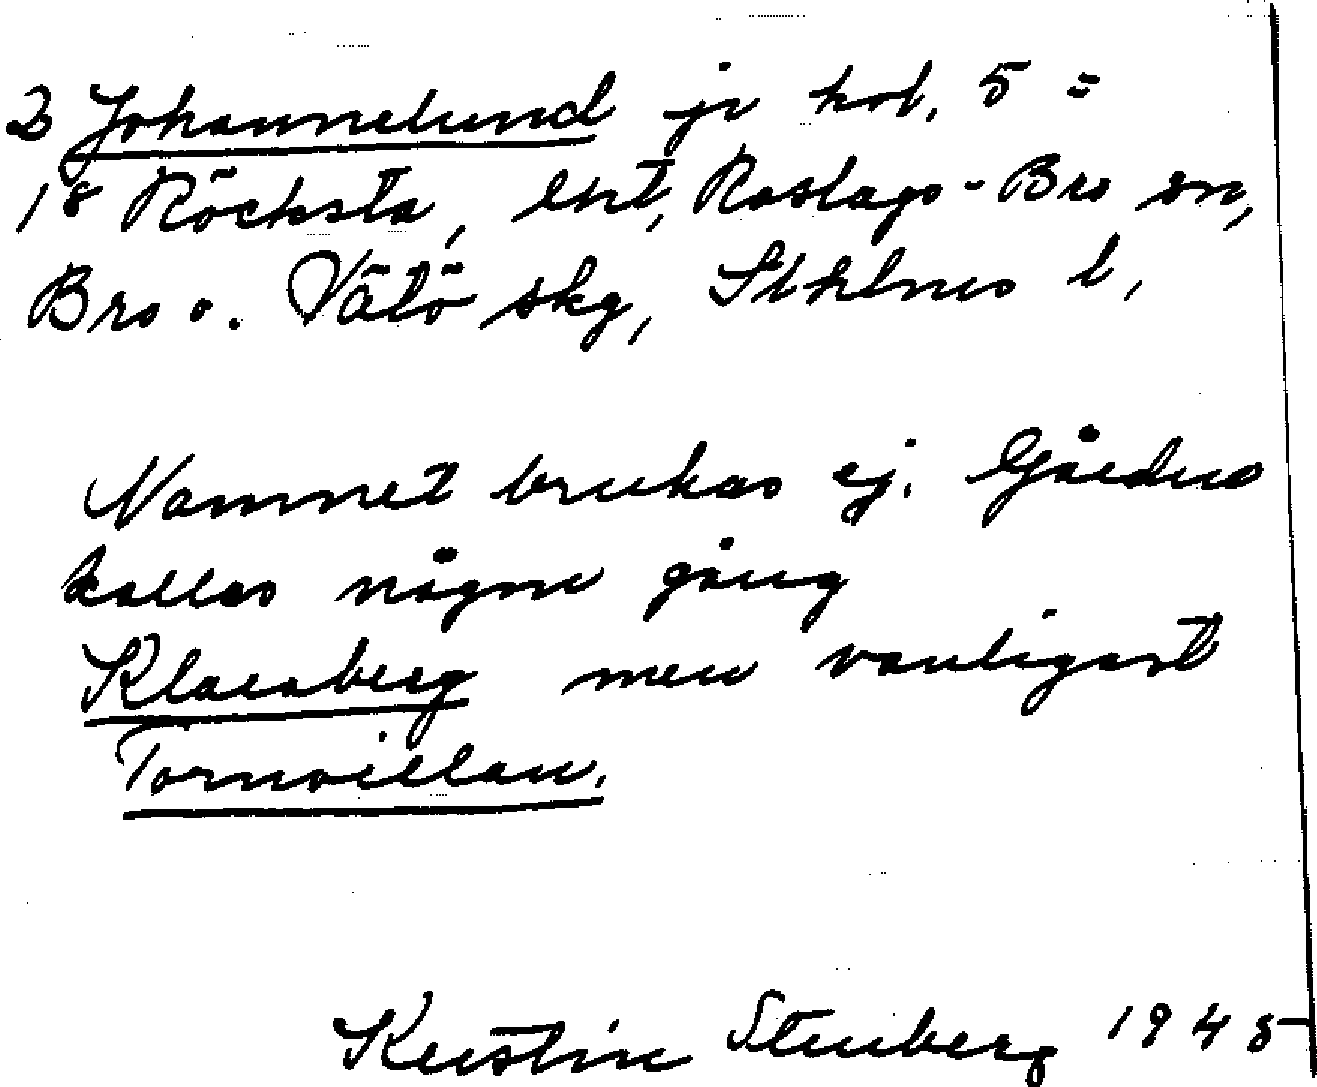 2 Johannelund jr kol. 5 =
18 Röcksta, lht, Roslags-Bro sn,
Bro o. Vätö skg, Sthlms l,
Namnet brukas ej. Gården
kallas någon gång
Klarsberg men vanligast
Tornvillan.
Kerstin Stenberg 1945